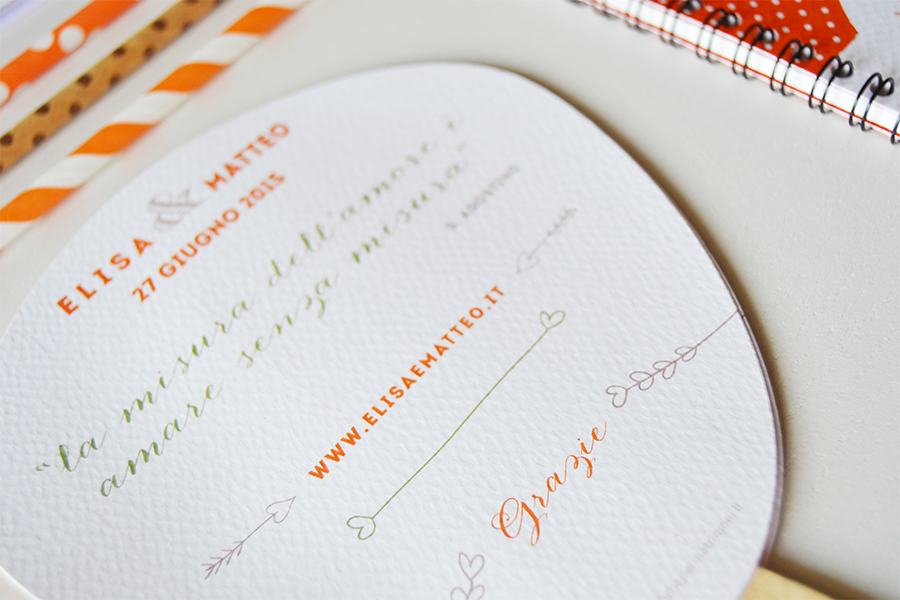 ELISA & MATTEO
27 GIUGNO 2015
"la misura dell'amore è
amare senza misura"
S. AGOSTINO
WWW.ELISAEMATTEO.IT
Grazie